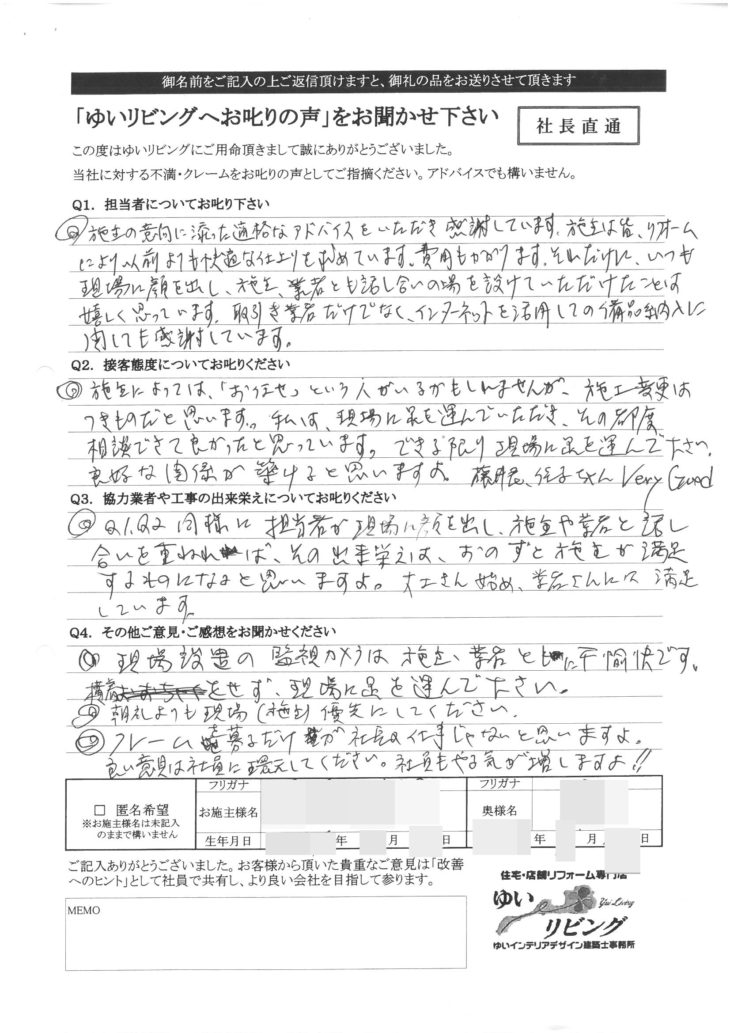 御名前をご記入の上ご返信頂けますと、御礼の品をお送りさせて頂きます
「ゆいリビングへお叱りの声」をお聞かせ下さい
社長直通
この度はゆいリビングにご用命頂きまして誠にありがとうございました。
当社に対する不満・クレームをお叱りの声としてご指摘ください。アドバイスでも構いません。
Q1. 担当者についてお叱り下さい
施主の意向に添った適格なアドバイスをいただき感謝しています。施主は皆、リフォーム
により以前よりも快適な仕上りを求めています。費用もかかります。それだけに、いつも
現場に顔を出し、施主、業者とも話し合いの場を設けていただけたことは
嬉しく思っています。取引き業者だけでなく、インターネットを活用しての備品納入に
関しても感謝しています。
Q2. 接客態度についてお叱りください
施主によっては、「おまかせ」という人がいるかもしれませんが、施工変更は
つきものだと思います。私は、現場に足を運んでいただき、その都度
相談できて良かったと思っています。できる限り現場に足を運んで下さい。
良好な関係が築けると思いますよ。 Very Good
Q3. 協力業者や工事の出来栄えについてお叱りください
Q1.Q2同様に担当者が現場に顔を出し、施主や業者と話し
合いを重ねれば、その出来栄えは、おのずと施主が満足
するものになると思いますよ。大工さん始め、業者さんには満足
しています。
Q4. その他ご意見・ご感想をお聞かせください
現場設置の監視カメラは施主、業者ともに不愉快です。
横着をせず、現場に足を運んで下さい。
朝礼よりも現場(施主)優先にしてください。
クレームを募るだけが社長の仕事じゃないと思いますよ。
良い意見は社員に還元してください。社員もやる気が増しますよ!!
□ 匿名希望
※お施主様名は未記入
のままで構いません
フリガナ
お施主様名
生年月日 年 月 日
フリガナ
奥様名
年 月 日
ご記入ありがとうございました。お客様から頂いた貴重なご意見は「改善
へのヒント」として社員で共有し、より良い会社を目指して参ります。
MEMO
住宅・店舗リフォーム専門店
ゆい
Yui Living
リビング
ゆいインテリアデザイン建築士事務所